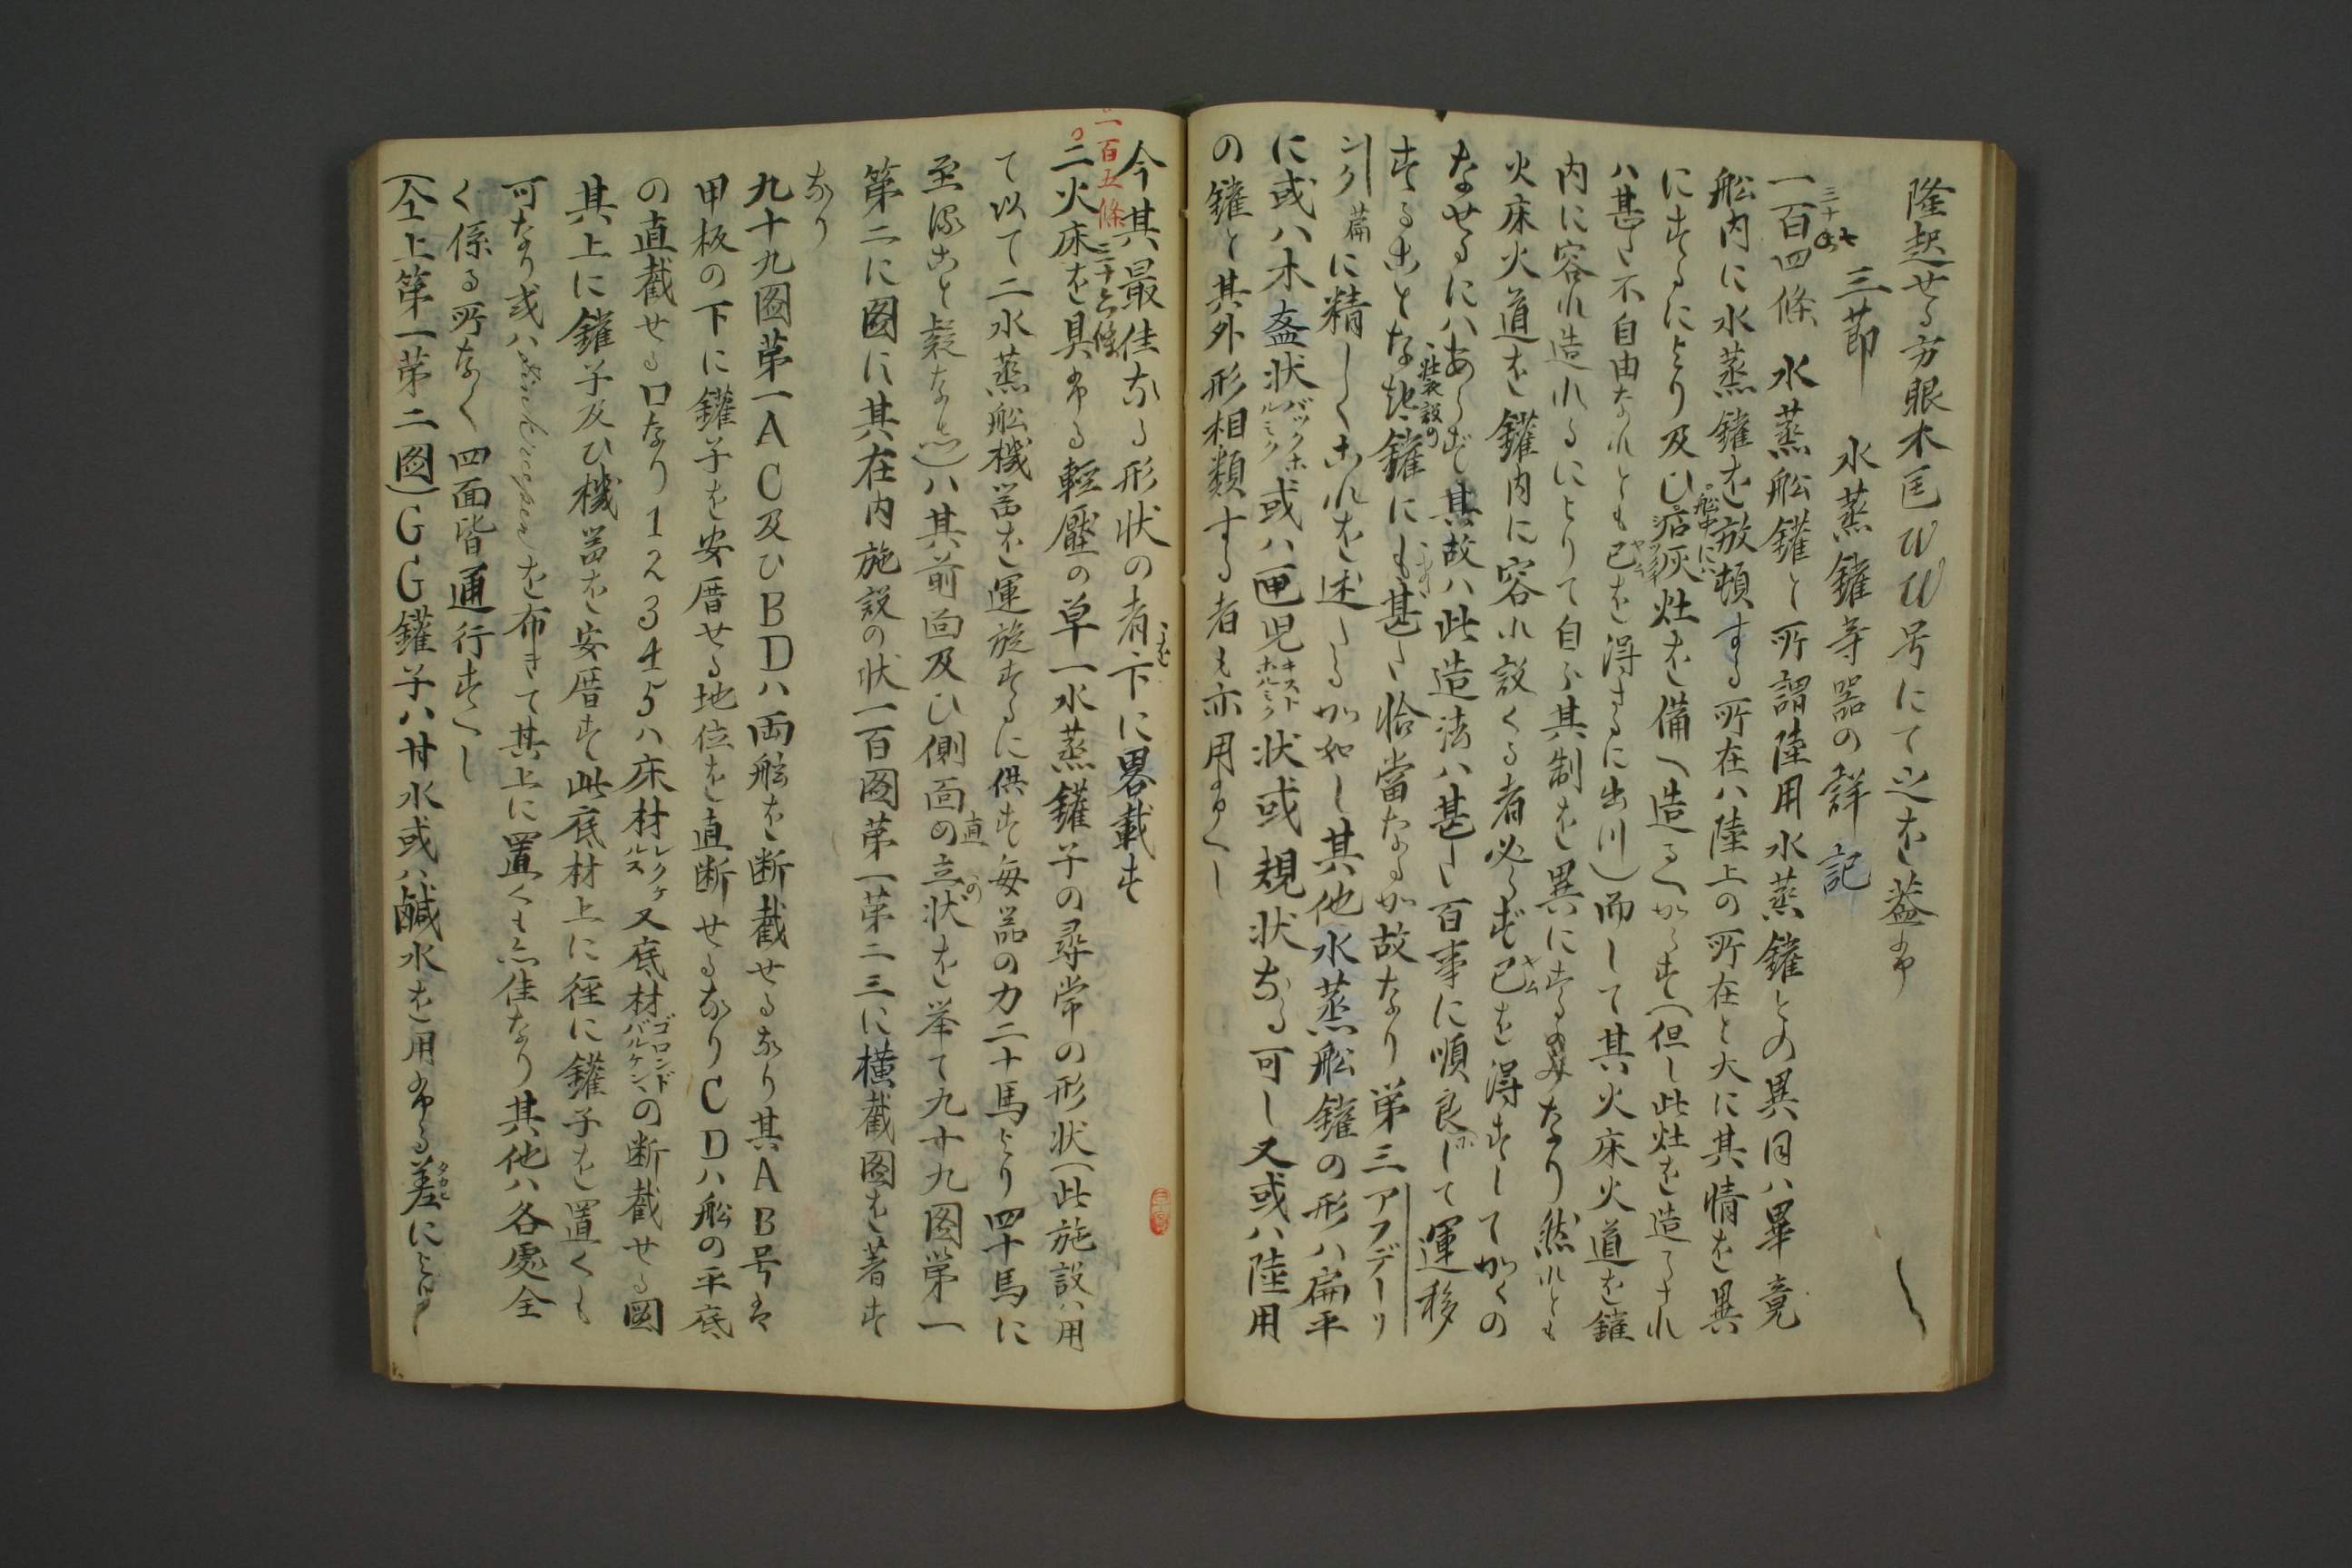 隆起せる方眼木匡WW号にて之を蓋ふ
三節 水蒸鑵等器の詳記
三十七
一百四條 水蒸舩鑵と所謂陸用水蒸鑵との異同ハ畢竟
舩内に水蒸鑵を放頓する所在ハ陸上の所在と大に其情を異
にするにより及ひ舩中に焙灰灶を備へ造るへからす(但し此灶を造らされ
ハ甚た不自由なれとも已を得さるに出川)而して其火床火道を鑵
内に容れ造れるによりて自ら其制を異にするのみなり然れとも
火床火道を鑵内に容れ設くる者必らす已を得すしてかくの
なせるにハあらす其故ハ此造法ハ甚た百事に順良にして運移
することなき装設の鑵にも甚た恰當なるか故なり第三アフデーリ
ンク篇に精しくこれを述たるか如し其他水蒸舩鑵の形ハ扁平
に或ハ木盍状バックホルミク或ハ匣児キストホルミク状或規状なる可し又或ハ陸用
の鑵と其外形相類する者も亦用ゆへし
今其最佳なる形状の者下に畧載す
一百五條 三十六條
二火床を具ふる輕壓の草一水蒸鑵子の尋常の形状(此施設ハ用
て以て二水蒸舩機器を運旋するに供す毎器の力二十馬より四十馬に
至ること疑なし)ハ其前面及ひ側面の直立状を挙て九十九図第一
第二に図に其在内施設の状一百図第一第二三に横截図を著す
なり
九十九図第一AC及ひBDハ両舷を断截せるなり其AB号は
甲板の下に鑵子を安厝せる地位を直断せるなりCDハ舩の平底
の直截せる口なり12345ハ床材レクケルス又底材ゴロンドバルケンの断截せる図
其上に鑵子及ひ機器を安厝す此底材上に徑に鑵子を置くも
可なり或ハを布きて其上に置くも亦佳なり其他ハ各處全
く係る所なく四面皆通行すへし
(仝上第一第二図)GG鑵子ハ甘水或ハ鹹水を用ふる差タカヒによりて